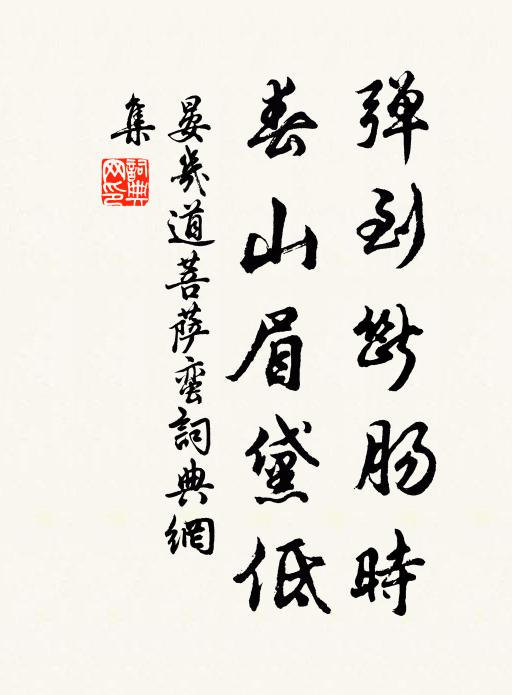 弹到断肠时
春山眉黛低
晏几道菩萨蛮詞典網
集
詞典
网印